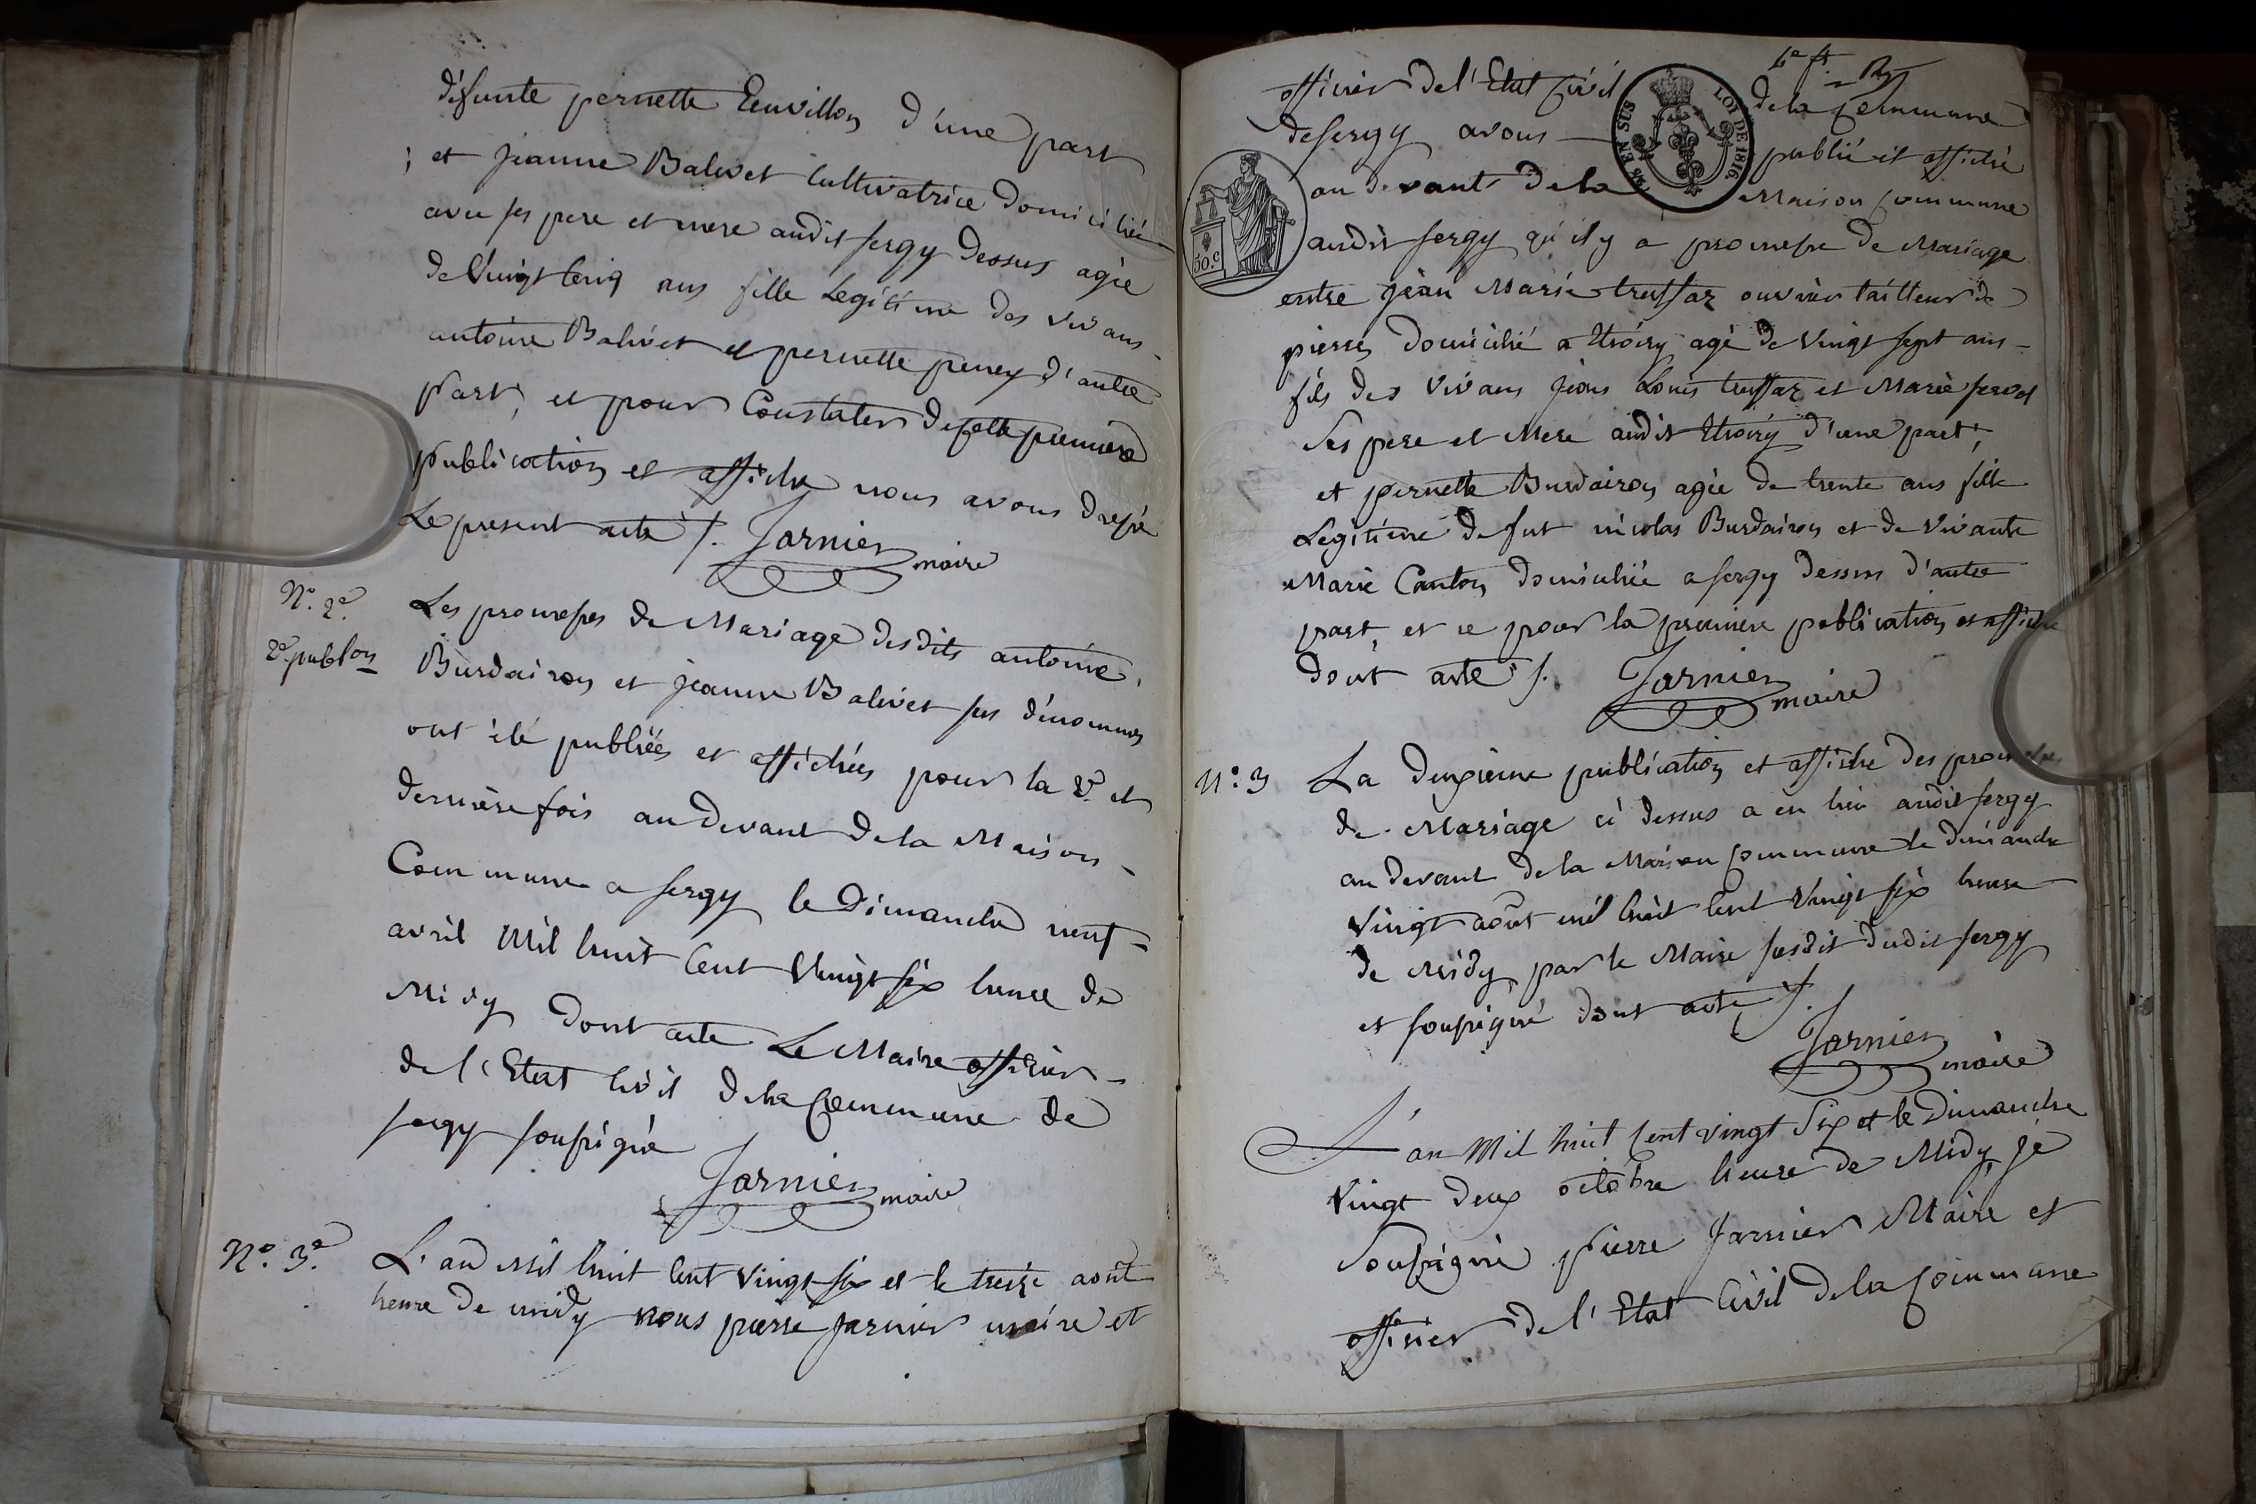 défunte pernette d'une part
; et jeanne Balivet Cultivatrice domiciliée
avec ses pere et mere audit sergy dessus agée
de Vingt Cinq ans fille Legitime des vivans
antoine Balivet et pernette peney d'autre
part, et pour Constater de cette premiere
publication et affiche nous avons dressé
Le present acte /. Jarnier maire
N.º 2.e
2.e publon
Les promesses de Mariage desdits antoine
Burdairon et jeanne Balivet sus dénommés
ont été publiées et affichées pour la 2.e et
derniere fois au devant de la Maison
Commune a sergy le Dimanche neuf
avril Mil huit Cent Vingt six heure de
Midy dont acte Le Maire officier
de l'Etat Civil de la Commune de
sergy soussigné
Jarnier maire
N.º 3.e
L'an Mil huit Cent Vingt six et le treize août
heure de midy nous pierre jarnier maire et
officier de l'Etat Civil de la Commune
de sergy avons publié et affiché
au devant de la Maison Commune
5 CS EN SUS LOI DE 1816
50.c
audit sergy qu'il y a promesse de Mariage
entre jean Marie truffaz ouvrier tailleur de
pierres domicilié a thoiry agé de vingt sept ans
fils des vivans jean Louis truffaz et Marie
Ses pere et Mere audit thoiry d'une part,
et pernette Burdairon agée de trente ans fille
Legitime de fut nicolas Burdairon et de vivante
Marie Canton domiciliée a sergy dessus d'autre
part, et ce pour la premiere publication et affiche
dont acte /. Jarnier maire
N.º 3
La deuxieme publication et affiche des promesses
de Mariage ci dessus a eu lieu audit sergy
au devant de la Maison Commune le dimanche
vingt août mil huit cent vingt six heure
de Midy par le Maire susdit dudit sergy
et soussigné dont acte /.
Jarnier maire
L'an Mil huit Cent vingt Six et le Dimanche
Vingt deux octobre heure de Midy, je
Soussigné pierre Jarnier Maire et
officier de l'Etat Civil de la Commune